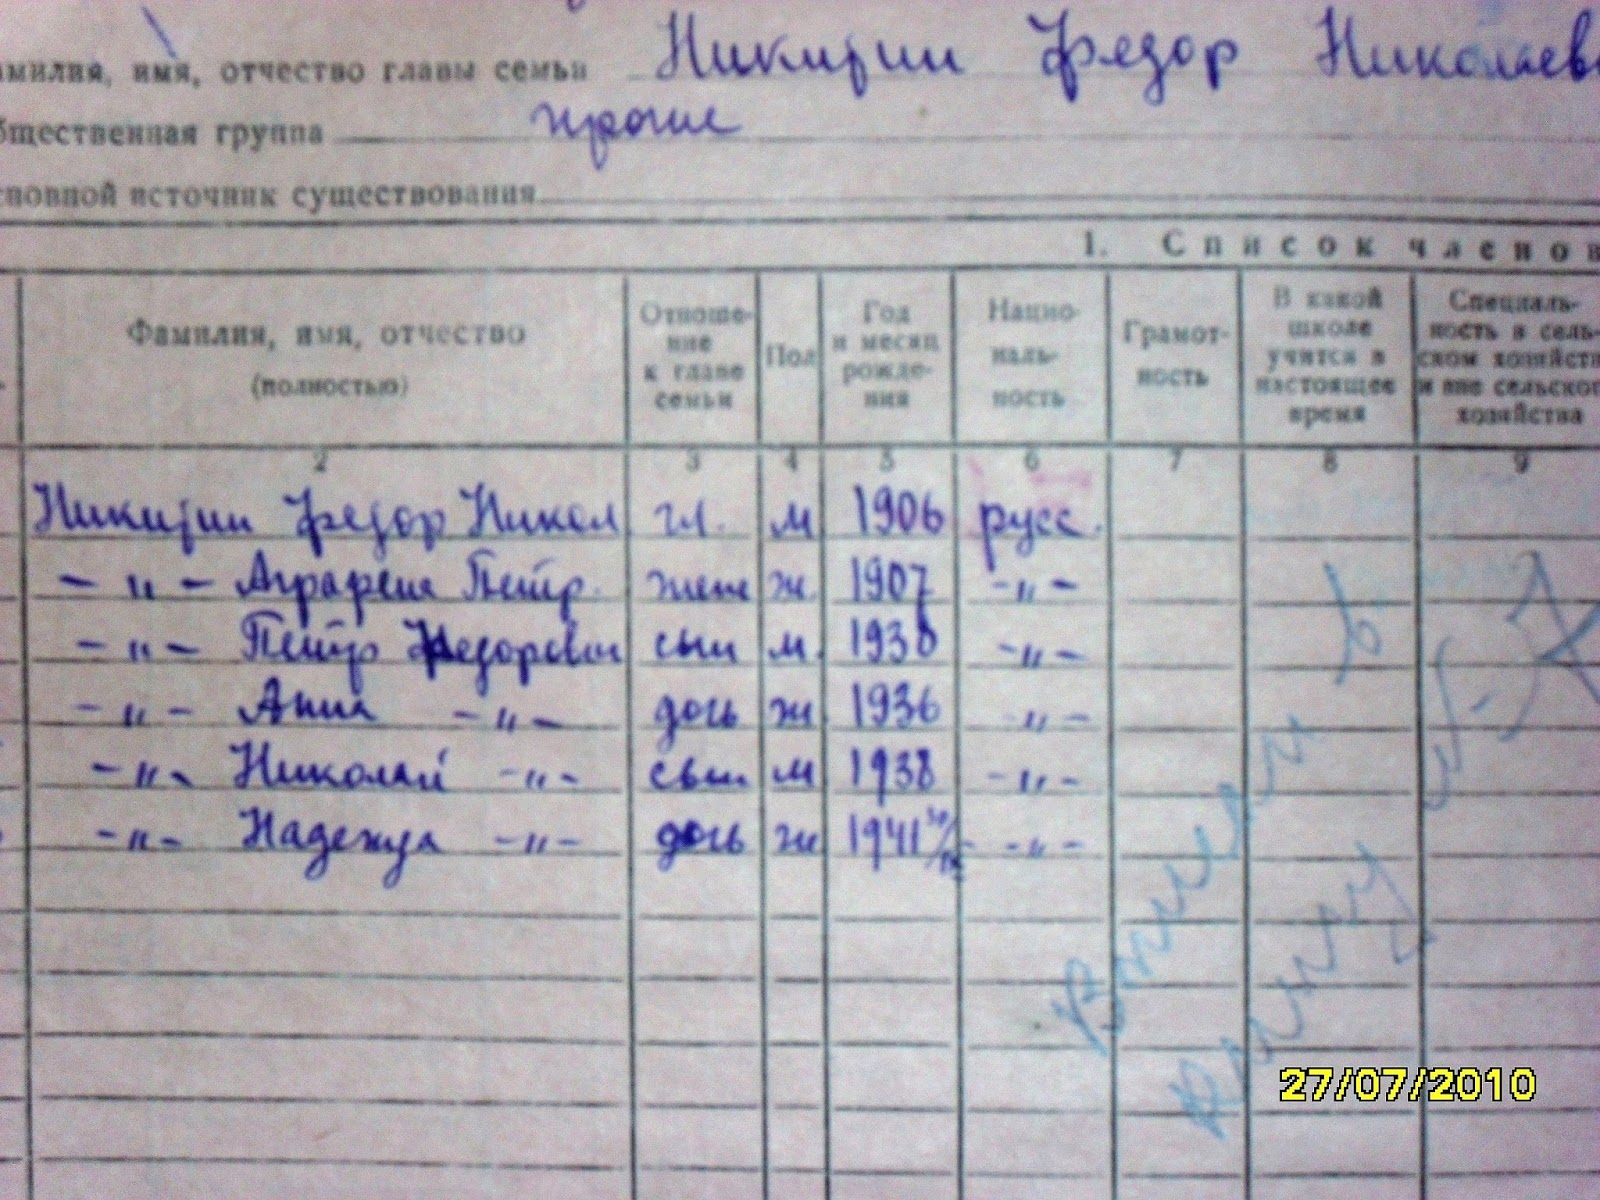 амилия, имя, отчество главы семьи Никитин Федор Николаев
бщественная группа прочие
сновной источник существования
1. Список членов
Фамилия, имя, отчество (полностью)
Отноше-ние к главе семьи
Пол
Год и месяц рожде-ния
Нацио-наль-ность
Грамот-ность
В какой школе учится в настоящее время
Специаль-ность в сель-ском хозяйств и вне сельског хозяйства
2 3 4 5 6 7 8 9
Никитин Федор Никол гл. м 1906 русс.
-"- Аграфена Петр. жена ж. 1907 -"-
-"- Петр Федорович сын м. 1930 -"-
-"- Анна -"- дочь ж 1936 -"-
-"- Николай -"- сын м 1938 -"-
-"- Надежда -"- дочь ж 1941 -"-
Вписан в
книгу № 7
27/07/2010